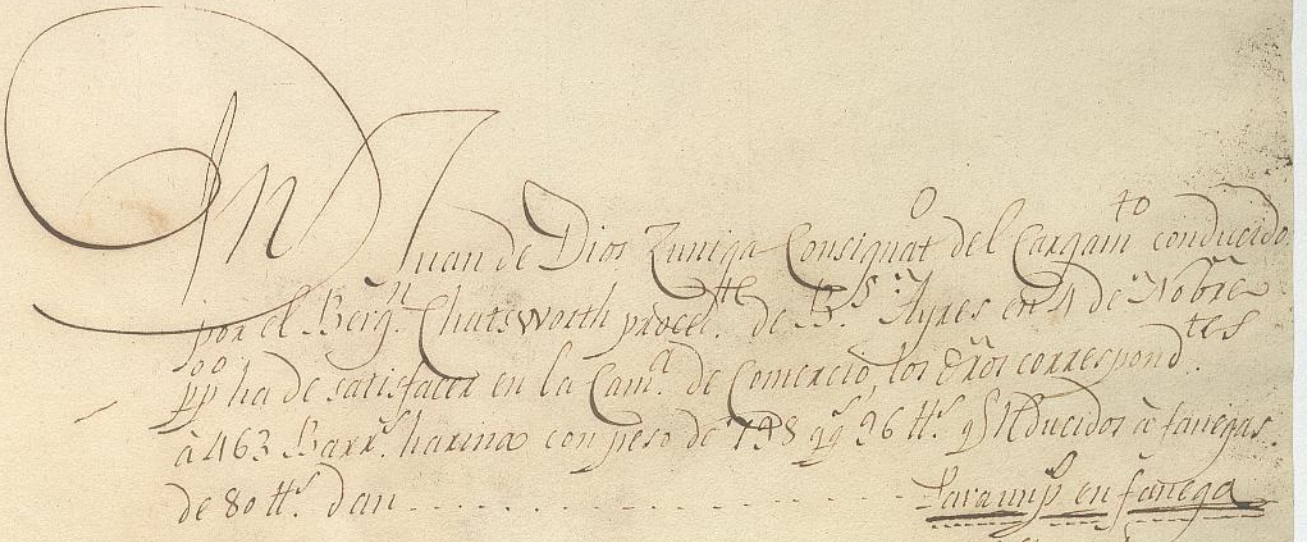 Dn Juan de Dios Zuniga Consignato del Cargamto conducido
por el Bergn Chatsworth procedte de Bs Ayres en 4 de Nobre
ppo ha de satisfacer en la Cama de Comercio, los dros correspondtes
à 463 Barrs harina con peso de 798 qqs 96 lls qe reducidos à fanegas
de 80 lls dan en fanega